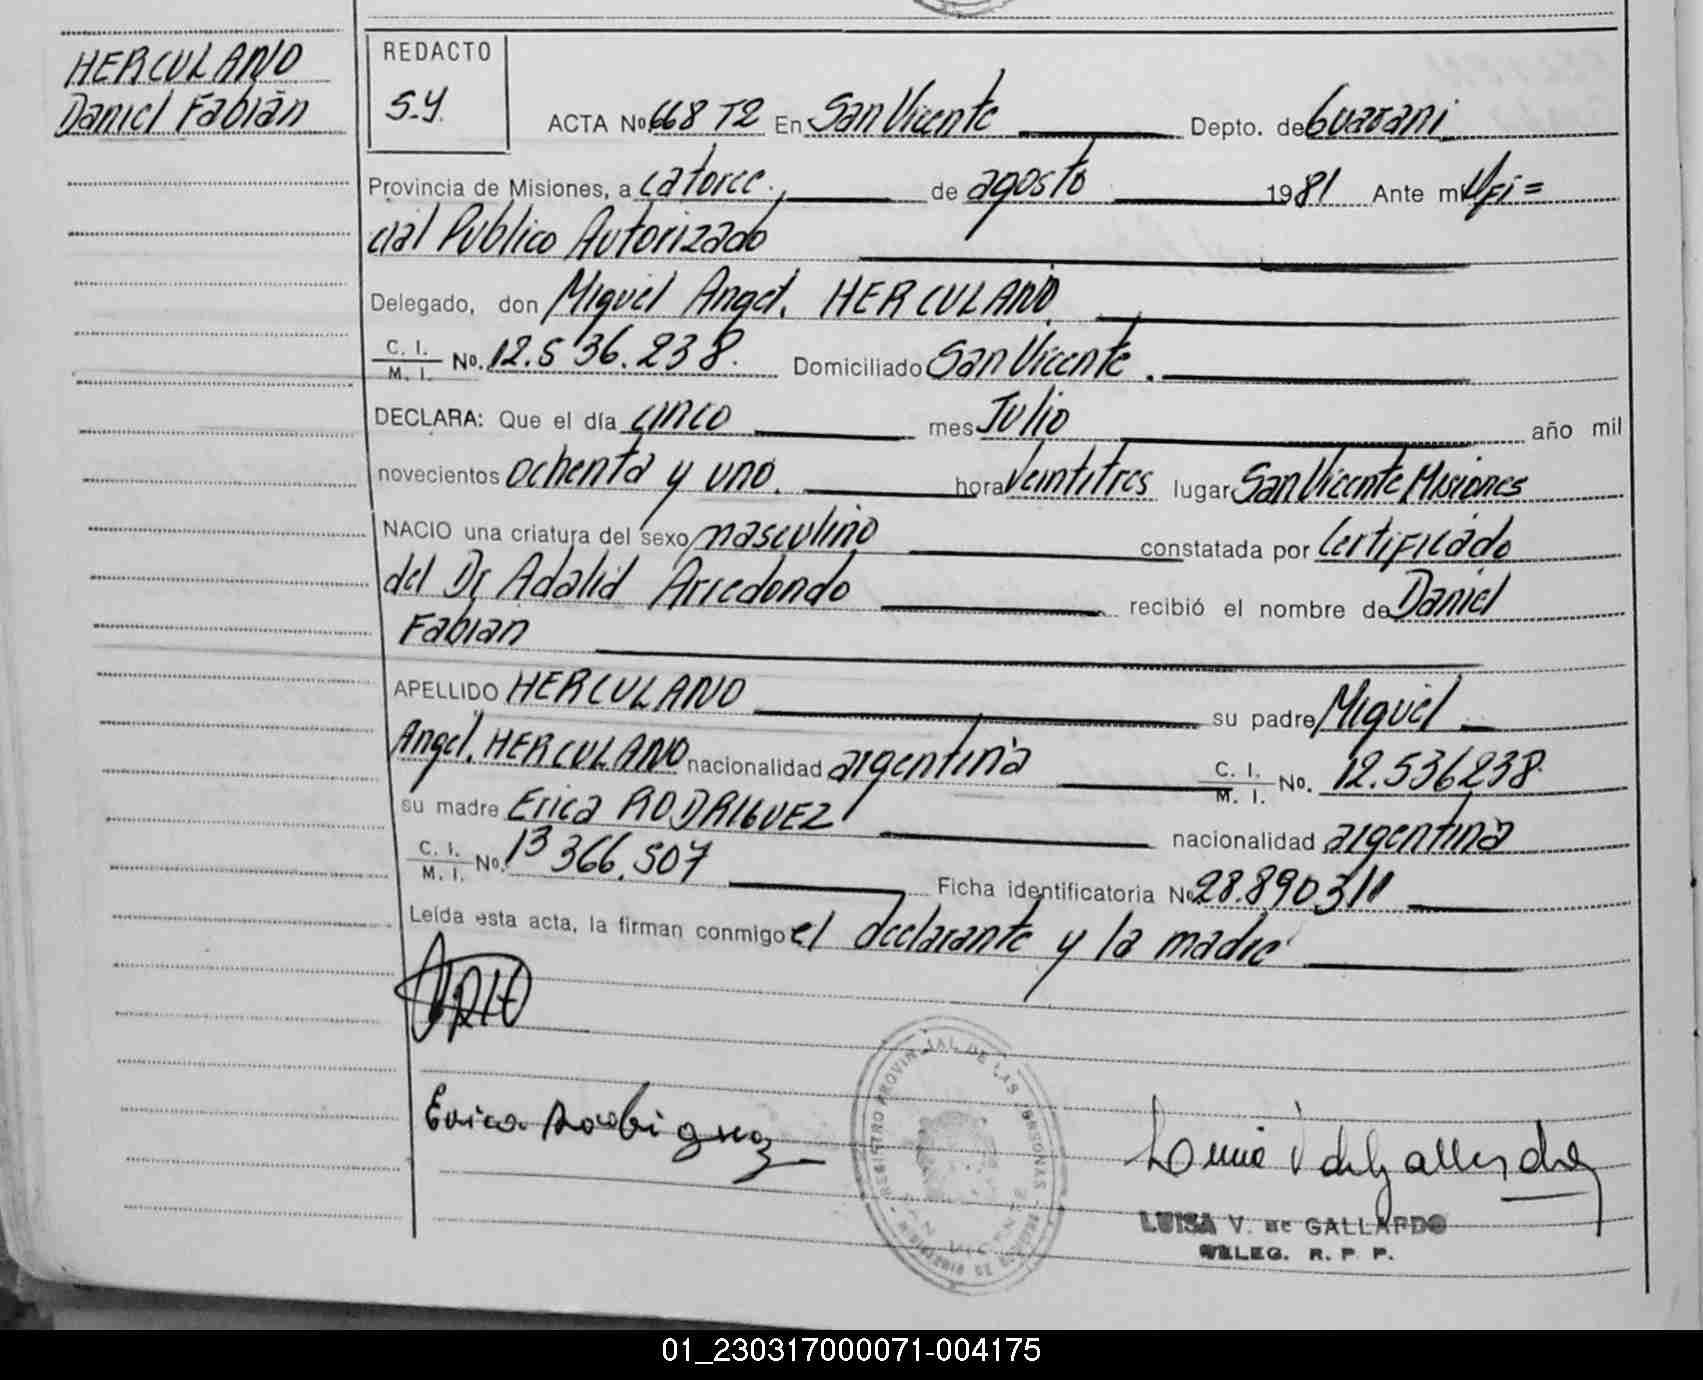 HERCULANO
Daniel Fabián
REDACTO
S.Y.
ACTA No 668 T2 En San Vicente Depto. de Guarani
Provincia de Misiones, a catorce, de agosto 1981 Ante mi Ofi=
cial Publico Autorizado
Delegado, don Miguel Angel. HERCULANO.
C. I. / M. I. No. 12.536.238. Domiciliado San Vicente.
DECLARA: Que el día cinco mes Julio año mil
novecientos ochenta y uno. hora veintitres lugar San Vicente Misiones
NACIO una criatura del sexo masculino constatada por Certificado
del Dr Adalid Arredondo recibió el nombre de Daniel
Fabian
APELLIDO HERCULANO su padre Miguel
Angel. HERCULANO nacionalidad argentina C. I. / M. I. No. 12.536238.
su madre Erica RODRIGUEZ nacionalidad argentina
C. I. / M. I. No. 13 366.507 Ficha identificatoria No 28.890311
Leída esta acta, la firman conmigo el declarante y la madre
Erica Rodriguez
REGISTRO PROVINCIAL DE LAS PERSONAS
SAN VICENTE
LUISA V. de GALLARDO
DELEG. R. P. P.
01_230317000071-004175